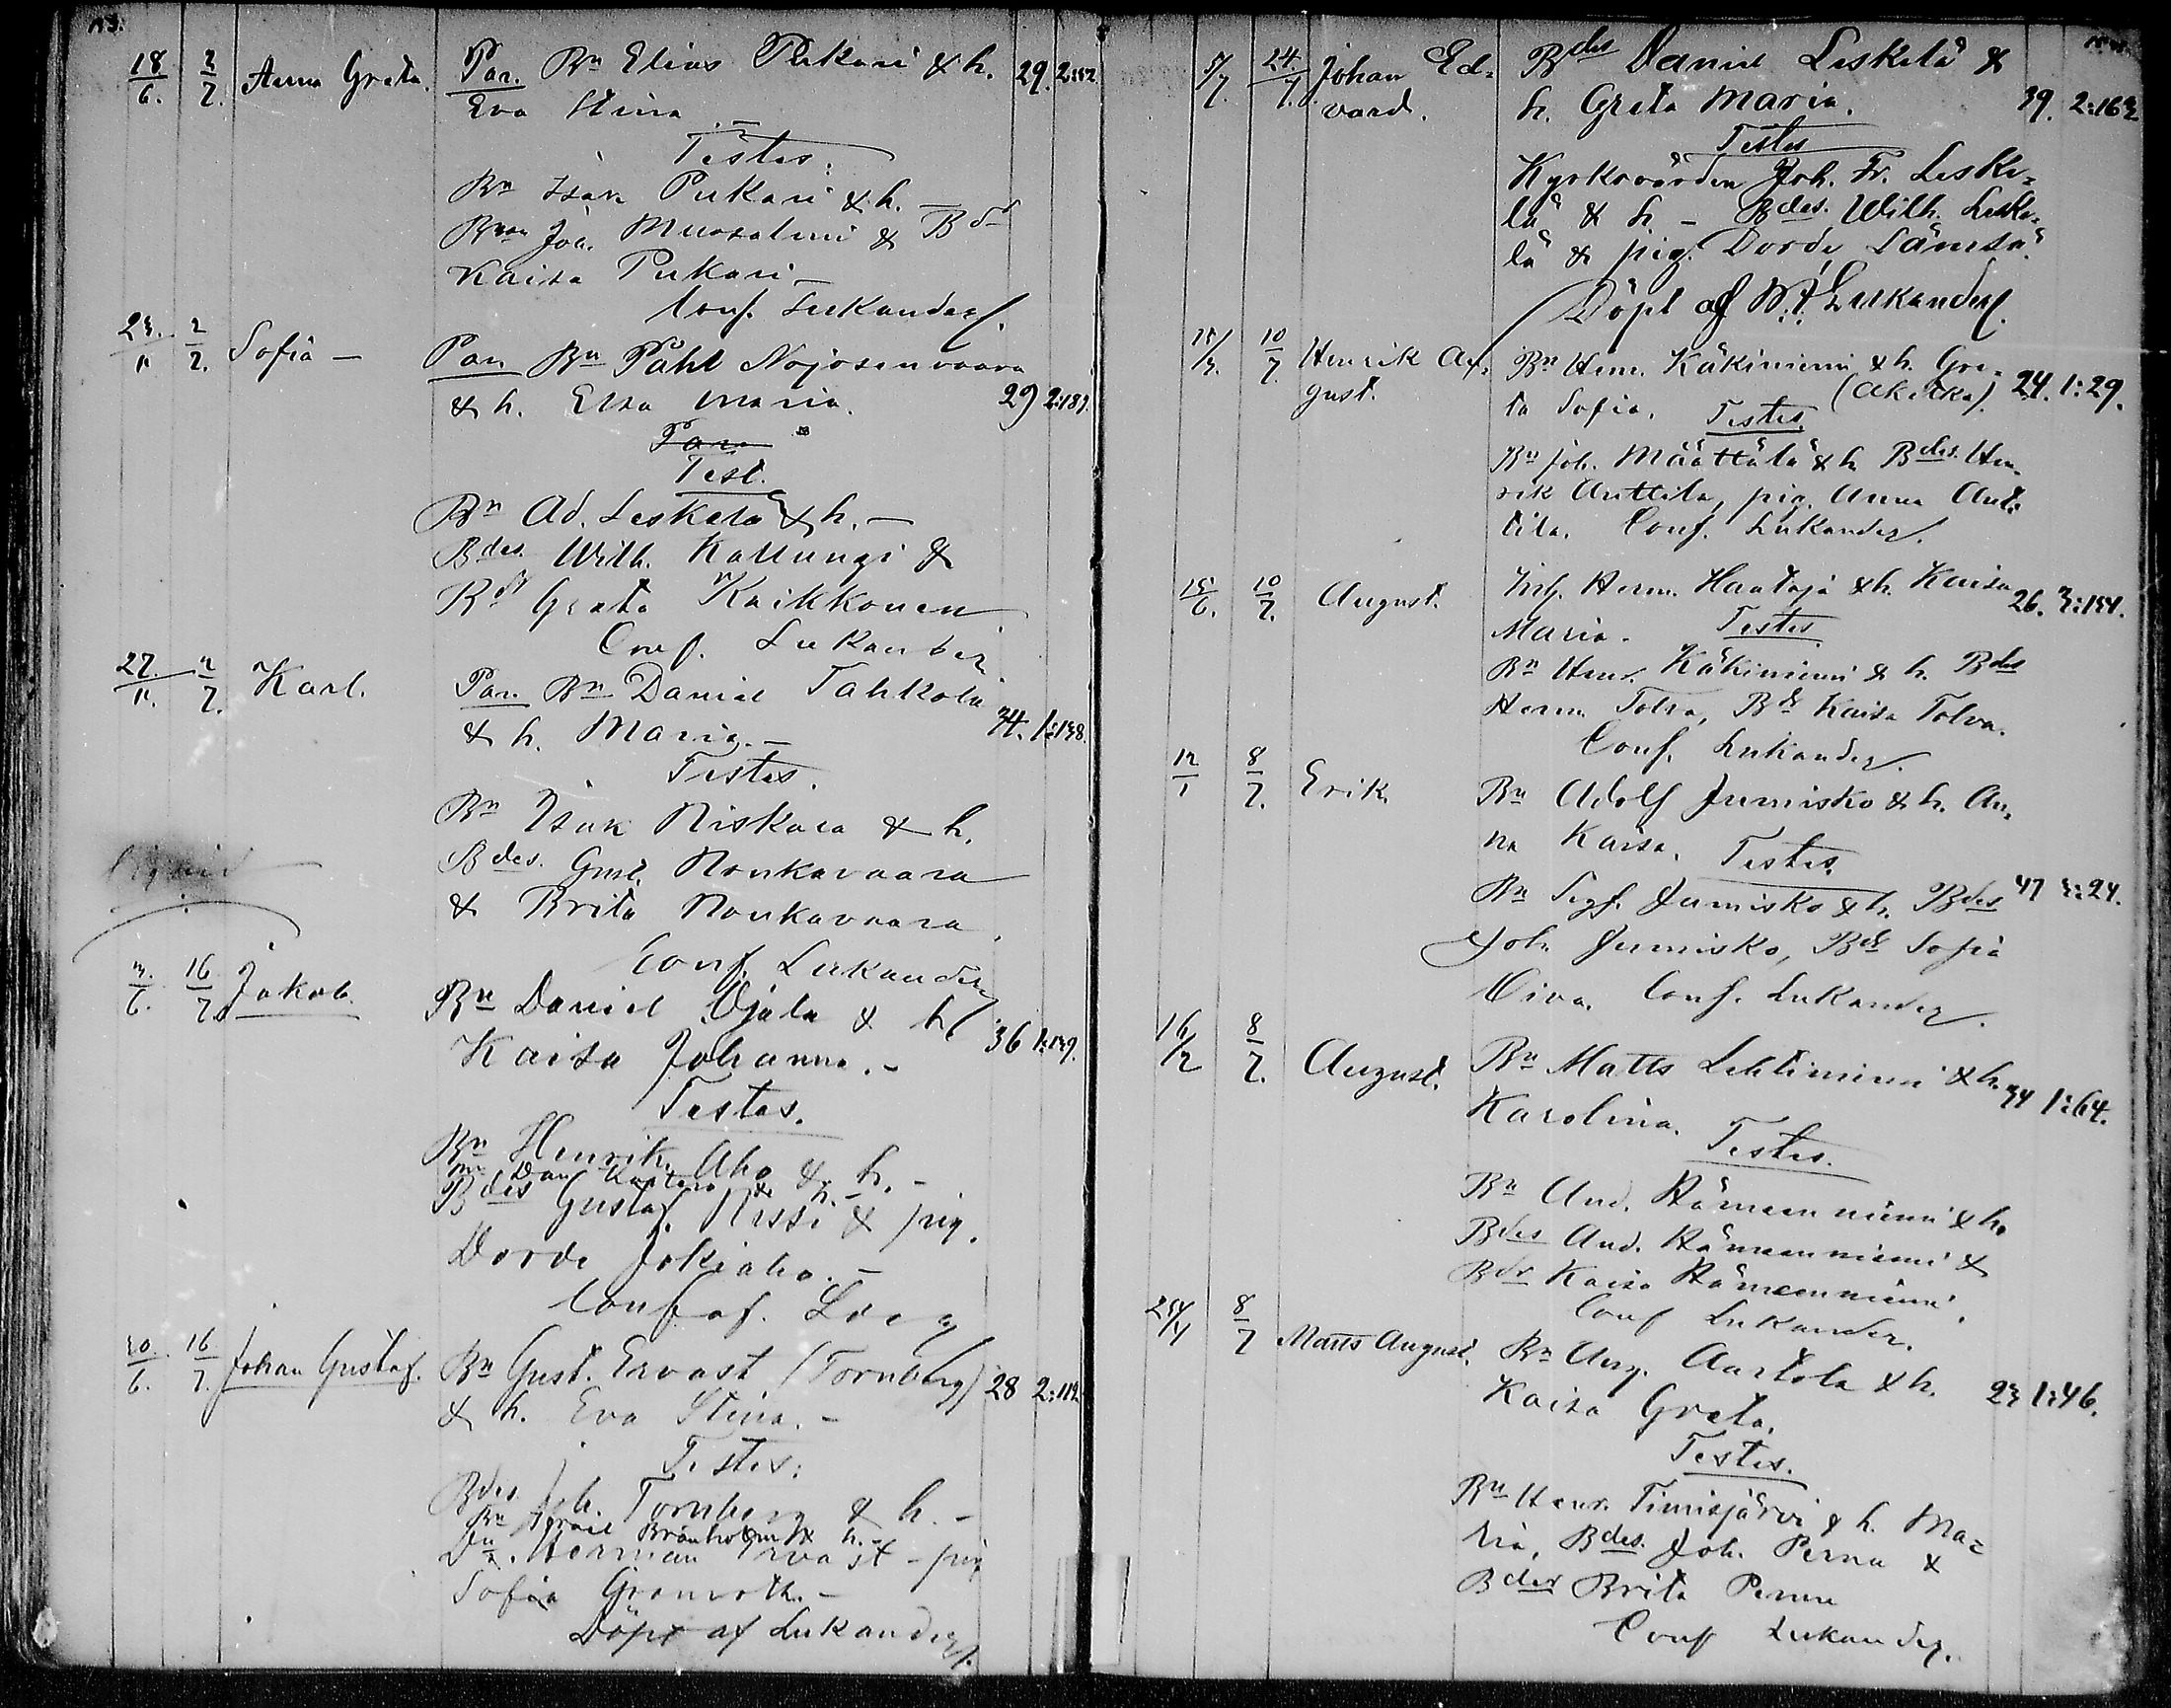 18/6. 2/7. Anna Greta. Par. Bn Elias Pukari & h. 29. 2:152
Eva Stina
Testes:
Bn Isak Pukari & h. –
Joh. Muosalmi & Bdr
Kaisa Pukari –
Conf. Lukander.
2/7. Sofia – Par. Bn Påhl Nojosenvaara
& h. Elsa Maria. 29 2:189.
Par.
Test.
Bn Ad. Leskelä & h. –
Bdes. Wilh. Kallungi &
Bdr Greta Kaikkonen
Conf. Lukander
27. 2/7. Karl. Par. Bn Daniel Tahkola
& h. Maria. – 34. 1:138.
Testes.
Bn Isak Niskala & h.
Bdes. Gust. Nonkavaara
& Brita Nonkavaara
Conf. Lukander
3/6. 16/7. Jakob. Bn Daniel Ojala & h. 36 1:139.
Kaisa Johanna. –
Testes.
Bn Henrik Aho & h. –
Dan & h. –
Bdes Gustaf Nissi & pig.
Dorde Jokiaho. –
Conf. af.
30/6. 16/7. Johan Gustaf. Bn Gust. Ervast (Tornberg) 28 2:112
& h. Eva Stina. –
Testes:
Bdes Joh. Tornberg & h. –
Bn Israel Brånholm & h. –
Dn. Herman Ervast – pig
Sofia Granroth. –
Döpt af Lukander.
5/7. 24/7. Johan Ed= Bdes Daniel Leskelä &
vard. h. Greta Maria. 39. 2:163
Testes
Kyrkovärden Joh. Fr. Leske=
lä & h – Bdes. Wilh. Leske=
lä & pig. Dorde Lämsä.
Döpt af W. A. Lukander.
15/3. 10/7. Henrik Au= Bn Henr. Käkiniemi & h. Gre=
gust. ta Sofia. (Akitka). 24. 1:29.
Testes.
Bn Joh. Määttälä & h. Bdes. Hen=
rik Anttila, pig. Anna Ant=
tila. Conf. Lukander.
15/6. 10/7. August. Herm. Haataja & h. Kaisa 26.
Maria. Testes
Bn Henr. Käkiniemi & h. Bdes
Herm. Tolva, Bdr Kaisa Tolva.
Conf. Lukander.
12/1 8/7. Erik. Bn Adolf Jumisko & h. An=
na Kaisa. Testes.
Bn Sigf. Jumisko & h. Bdes 47 3:24.
Joh. Jumisko, Bdr Sofia
Oiva. Conf. Lukander.
16/2 8/7. August. Bn Matts Lehtiniemi & h. 34 1:64.
Karolina. Testes.
Bn And. Hämeenniemi & h.
Bdes And. Hämeenniemi &
Bdr Kaisa Hämeenniemi.
Conf Lukander.
8/7 Matts August. Bn Aug. Aartola & h. 23 1:46.
Kaisa Greta.
Testes.
Bn Henr. Timisjärvi & h. Ma=
ria, Bdes. Joh. Perna &
Bder Brita Perna
Conf Lukander.